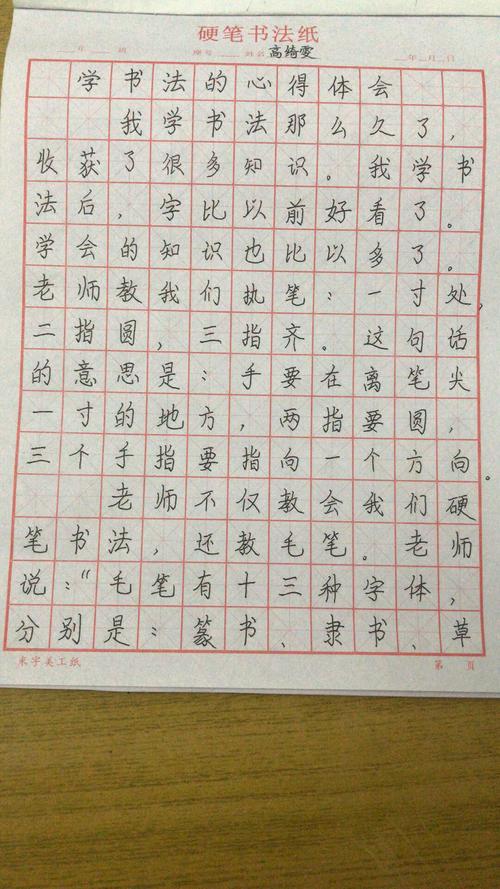 硬笔书法纸
年 班 座号 姓名高绮雯 年 月 日
学书法的心得体会
我学书法那么久了，
收获了很多知识。我学书
法后，字比以前好看了。
学会的知识也比以多了。
老师教我们执笔：一寸处，
二指圆，三指齐。这句话
的意思是：手要在离笔尖
一寸的地方，两指要圆，
三个手指要指向一个方向。
老师不仅教会我们硬
笔书法，还教毛笔。老师
说：“毛笔有十三种字体，
分别是：篆书、隶书、草
米字美工纸 第 页